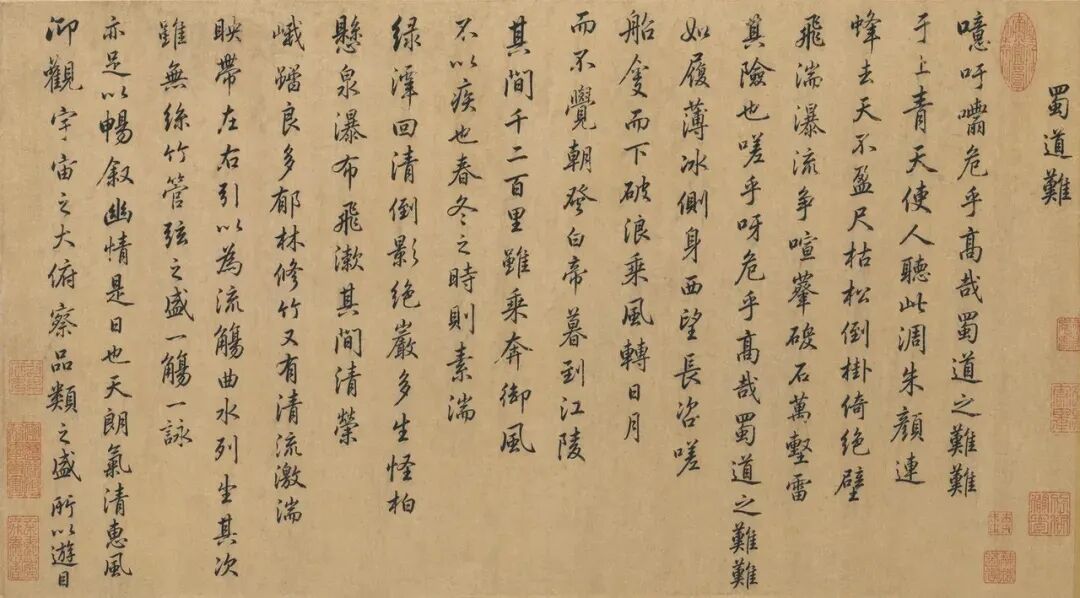 蜀道難
噫吁危乎高哉蜀道之難難
于上青天使人聽此凋朱顏連
峰去天不盈尺枯松倒掛倚絕壁
飛湍瀑流爭喧石萬壑雷
其險也嗟乎呀危乎高哉蜀道之難難
如履薄冰側身西望長咨嗟
船而下破浪乘風轉日月
而不覺朝發白帝暮到江陵
其間千二百里雖乘奔御風
不以疾也春冬之時則素湍
綠潭回清倒影絕巖多生怪柏
懸泉瀑布飛漱其間清榮
峨良多郁林修竹又有清流激湍
映帶左右引以為流觴曲水列坐其次
雖無絲竹管弦之盛一觴一詠
亦足以暢叙幽情是日也天朗氣清惠風
仰觀宇宙之大俯察品類之盛所以遊目